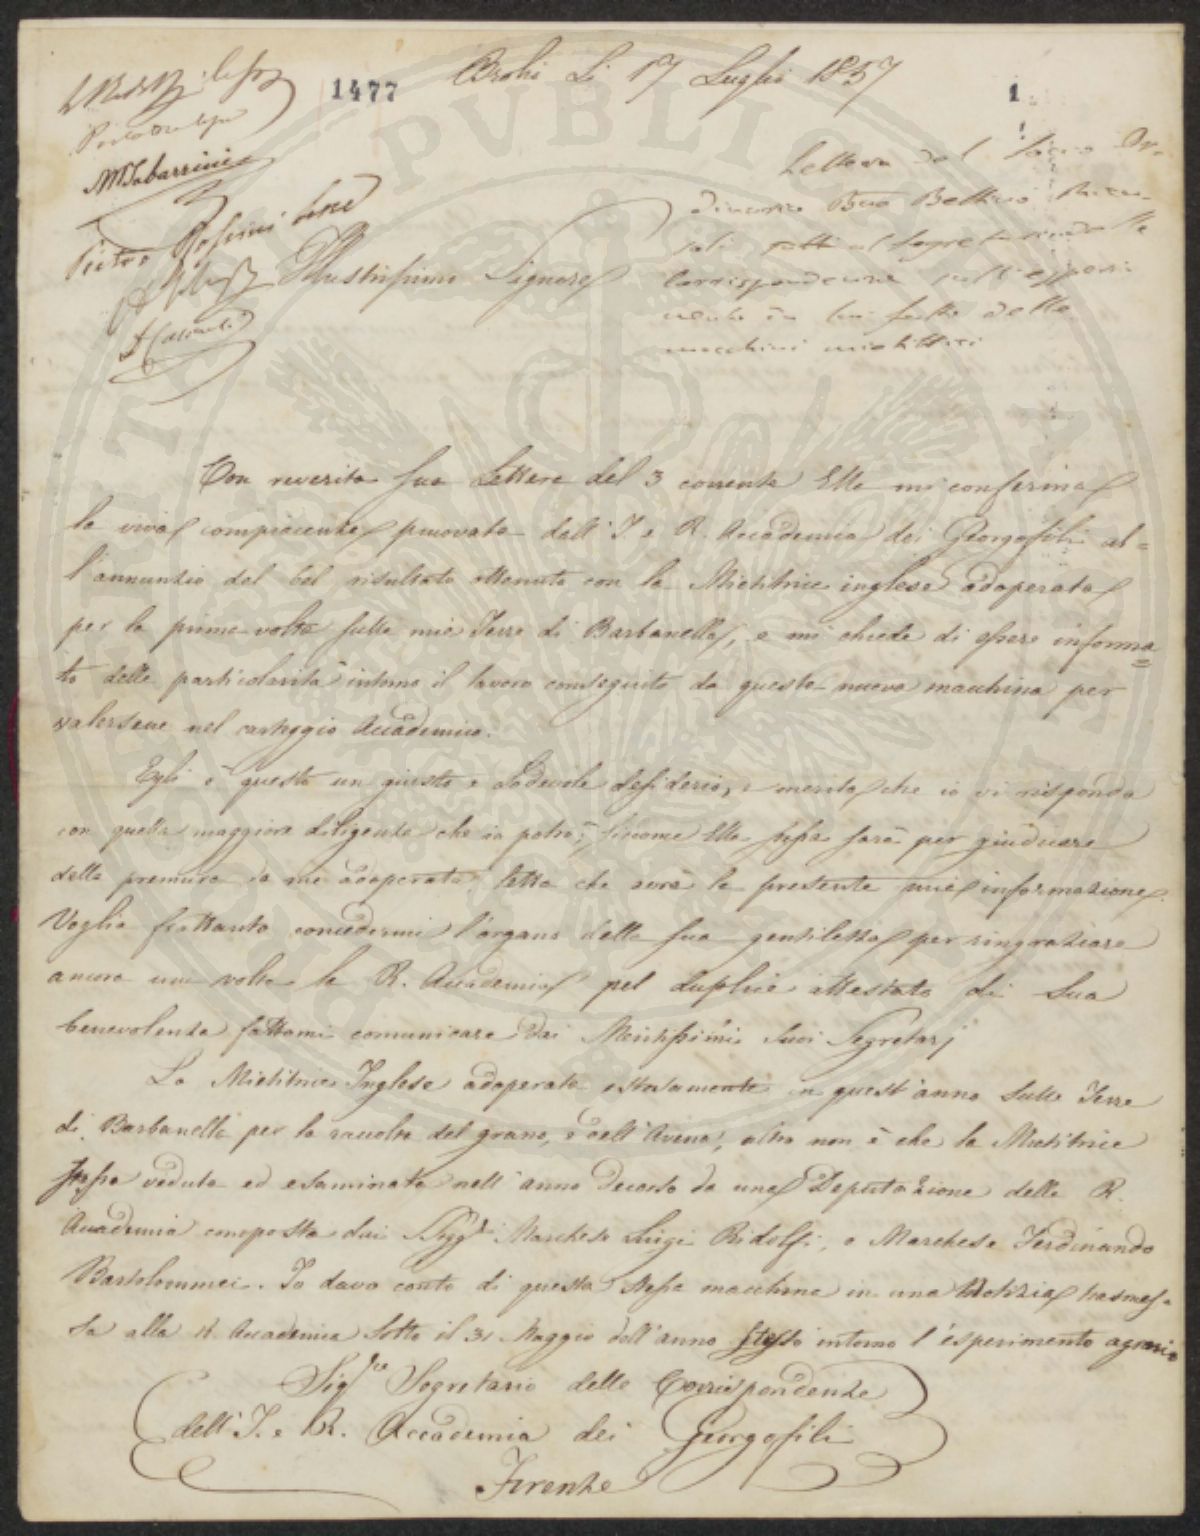 1477
Broli Li 17 Luglio 1857
1
Lettera del Socio Or-
dinario Bno Bettino Rica-
soli al Segretario delle
Corrispondenze sull'esperi-
mento da lui fatto delle
macchine mietitrici
MTabarrini
Pietro Rosini
Illustrissimo Signore
Con reverita sua Lettera del 3 corrente Ella mi conferma
la viva compiacenza provata dall'I. e R. Accademia dei Georgofili al=
l'annunzio del bel risultato ottenuto con la Mietitrice inglese adoperata
per la prima volta sulle mie Terre di Barbanella, e mi chiede di essere informa
to delle particolarità intorno il lavoro conseguito da questa nuova macchina per
valersene nel carteggio Accademico.
Egli è questo un giusto e Lodevole desiderio, e merita che io vi risponda
con quella maggiore diligenza che io potrò; siccome Ella stessa sarà per giudicare
della premura da me adoperata, letta che avrà la presente mia informazione.
Voglia frattanto concedermi l'organo della sua gentilezza per ringraziare
ancora una volta la R. Accademia pel duplice attestato di Sua
benevolenza fattami comunicare dai Meritissimi suoi Segretarj
La Mietitrice Inglese adoperata estesamente in quest'anno sulle Terre
di Barbanella per la raccolta del grano, e dell'Avena, altro non è che la Mietitrice
stessa veduta ed esaminata nell'anno decorso da una Deputazione della R.
Accademia composta dai Sigg.ri Marchese Luigi Ridolfi, e Marchese Ferdinando
Bartolommei. Io davo conto di questa stessa macchina in una Notizia trasmes=
sa alla R. Accademia sotto il 31 Maggio dell'anno stesso intorno l'esperimento agrario
Sig.re Segretario delle Corrispondenze
dell'I. e R. Accademia dei Georgofili
Firenze